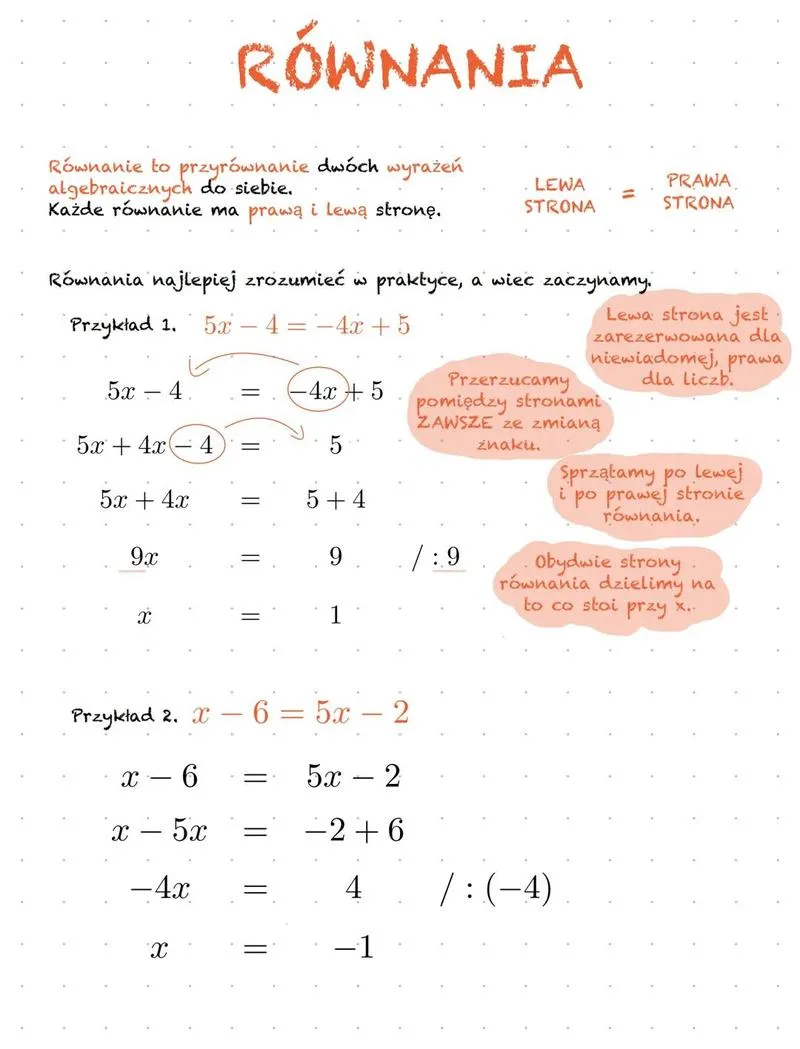 RÓWNANIA
Równanie to przyrównanie dwóch wyrażeń
algebraicznych do siebie.
Każde równanie ma prawą i lewą stronę.
LEWA
STRONA
=
PRAWA
STRONA
Równania najlepiej zrozumieć w praktyce, a wiec zaczynamy.
Przykład 1. 5x − 4 = −4x + 5
5x − 4 = −4x + 5
5x + 4x − 4 = 5
5x + 4x = 5 + 4
9x = 9 / : 9
x = 1
Lewa strona jest
zarezerwowana dla
niewiadomej, prawa
dla liczb.
Przerzucamy
pomiędzy stronami
ZAWSZE ze zmianą
znaku.
Sprzątamy po lewej
i po prawej stronie
równania.
Obydwie strony
równania dzielimy na
to co stoi przy x.
Przykład 2. x − 6 = 5x − 2
x − 6 = 5x − 2
x − 5x = −2 + 6
−4x = 4 / : (−4)
x = −1